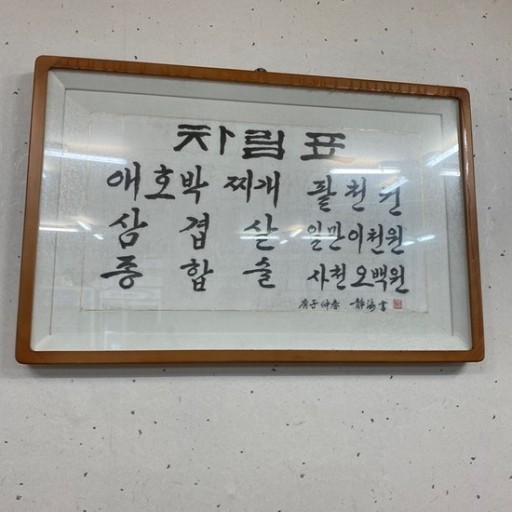 차림표
애호박 찌개 팔천원
삼겹살 일만이천원
종합술 사천오백원
庚子仲春 静海書